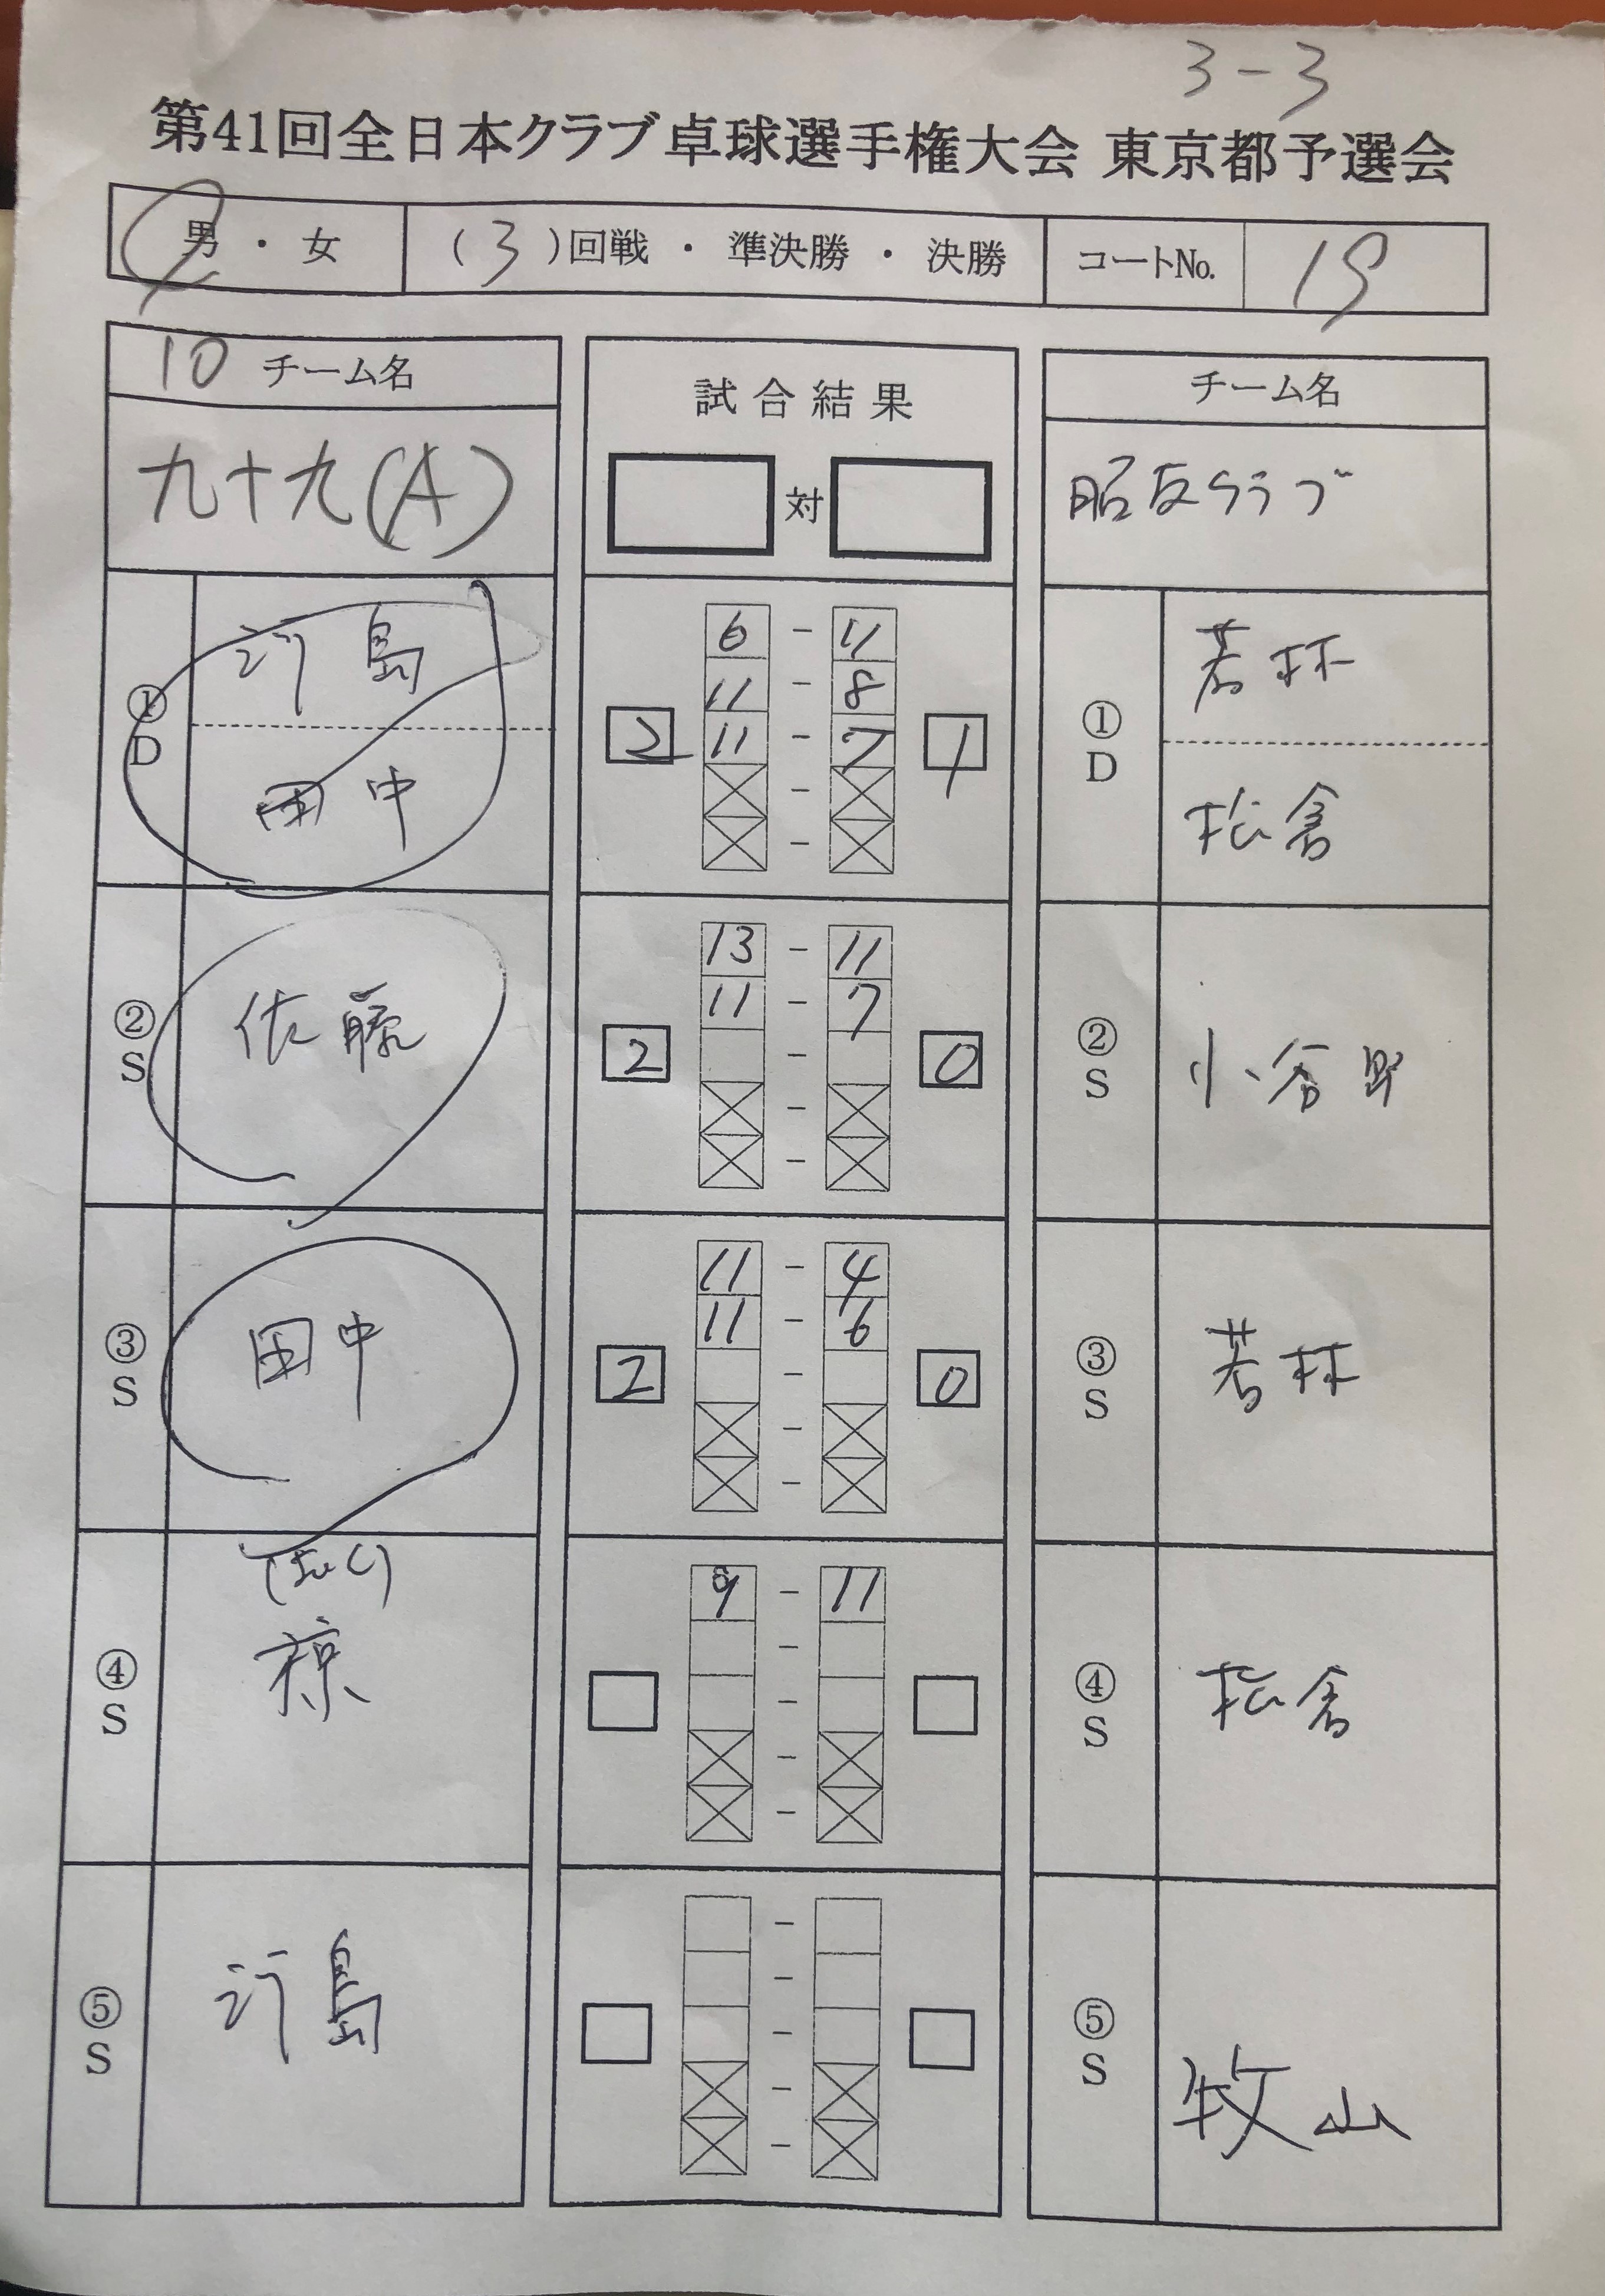 3-3
第41回全日本クラブ卓球選手権大会 東京都予選会
男・女 (3)回戦・準決勝・決勝 コートNo. 19
10 チーム名
九十九(A)
試合結果
対
チーム名
昭友クラブ
① D
島
田中
2
6 - 11
11 - 8
11 - 7
-
-
1
① D
若林
松倉
② S
佐藤
2
13 - 11
11 - 7
-
-
-
0
② S
小
③ S
田中
2
11 - 4
11 - 6
-
-
-
0
③ S
若林
④ S
椋
9 - 11
-
-
-
-
④ S
松倉
⑤ S
島
-
-
-
-
-
⑤ S
牧山